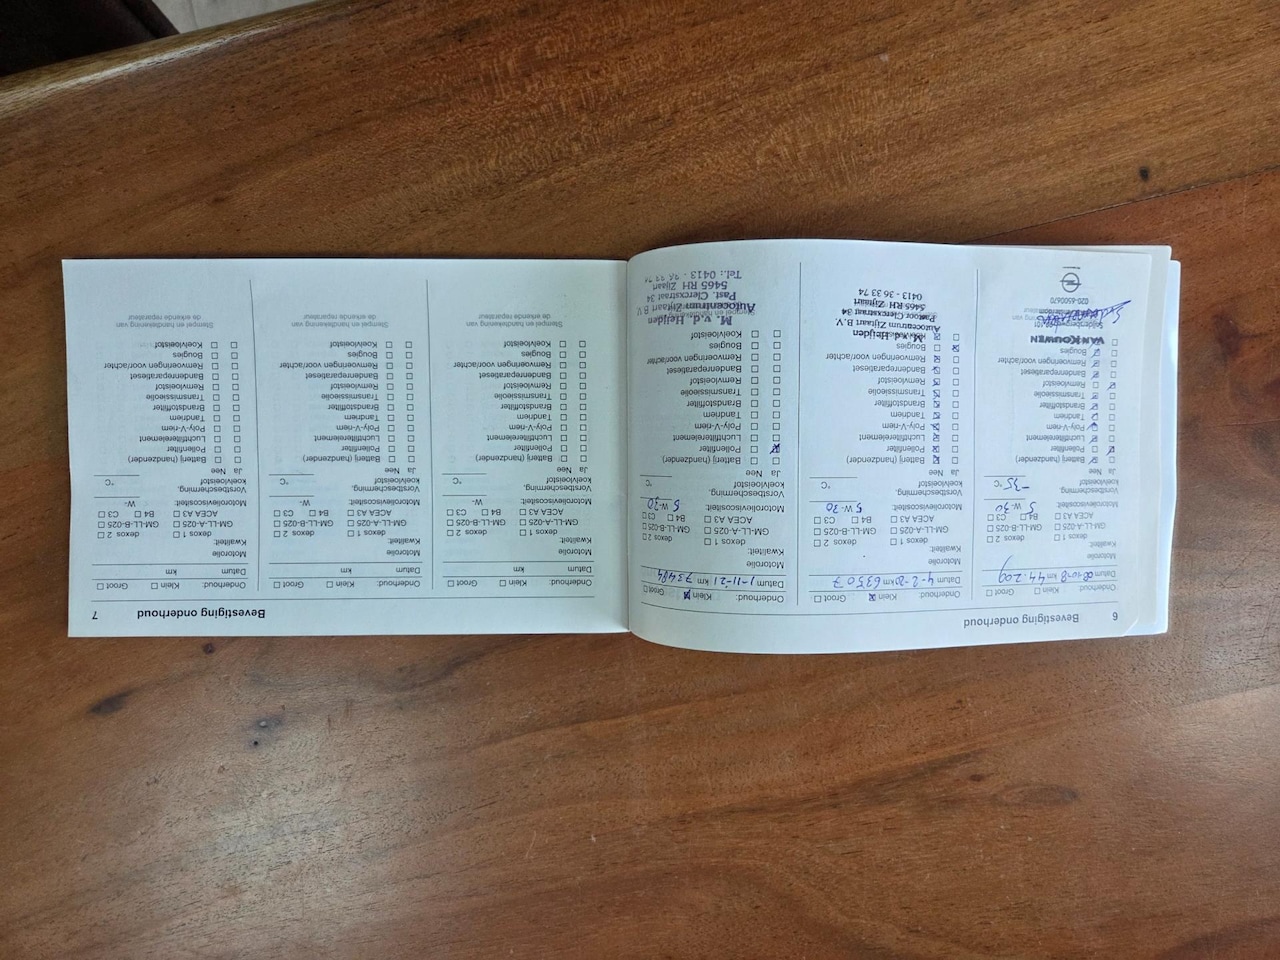 6 Bevestiging onderhoud
Onderhoud: Klein Groot
Datum km 44.209
Motorolie
Kwaliteit:
dexos 1 dexos 2
GM-LL-A-025 GM-LL-B-025
ACEA A3 B4 C3
Motorolieviscositeit: 5 W- 30
Vorstbescherming,
koelvloeistof -35 °C
Ja Nee
Batterij (handzender)
Pollenfilter
Luchtfilterelement
Poly-V-riem
Tandriem
Brandstoffilter
Transmissieolie
Remvloeistof
Bandenreparatieset
Remvoeringen voor/achter
Bougies
VAN KOUWEN
020-6500670
Onderhoud: Klein Groot
Datum 4-2-20 km 63507
Motorolie
Kwaliteit:
dexos 1 dexos 2
GM-LL-A-025 GM-LL-B-025
ACEA A3 B4 C3
Motorolieviscositeit: 5 W- 30
Vorstbescherming,
koelvloeistof °C
Ja Nee
Batterij (handzender)
Pollenfilter
Luchtfilterelement
Poly-V-riem
Tandriem
Brandstoffilter
Transmissieolie
Remvloeistof
Bandenreparatieset
Remvoeringen voor/achter
Bougies
M. v.d. Heijden
Autocentrum Zijtaart B.V.
Pastoor Clercxstraat 34
5465 RH Zijtaart
0413 - 36 33 74
Onderhoud: Klein Groot
Datum 1-11-21 km 73484
Motorolie
Kwaliteit:
dexos 1 dexos 2
GM-LL-A-025 GM-LL-B-025
ACEA A3 B4 C3
Motorolieviscositeit: 5 W- 30
Vorstbescherming,
koelvloeistof °C
Ja Nee
Batterij (handzender)
Pollenfilter
Luchtfilterelement
Poly-V-riem
Tandriem
Brandstoffilter
Transmissieolie
Remvloeistof
Bandenreparatieset
Remvoeringen voor/achter
Bougies
Koelvloeistof
M. v.d. Heijden
Autocentrum Zijtaart B.V.
Past. Clercxstraat 34
5465 RH Zijtaart
Tel.: 0413 - 36 33 74
Bevestiging onderhoud 7
Onderhoud: Klein Groot
Datum km
Motorolie
Kwaliteit:
dexos 1 dexos 2
GM-LL-A-025 GM-LL-B-025
ACEA A3 B4 C3
Motorolieviscositeit: W-
Vorstbescherming,
koelvloeistof °C
Ja Nee
Batterij (handzender)
Pollenfilter
Luchtfilterelement
Poly-V-riem
Tandriem
Brandstoffilter
Transmissieolie
Remvloeistof
Bandenreparatieset
Remvoeringen voor/achter
Bougies
Koelvloeistof
Stempel en handtekening van
de erkende reparateur
Onderhoud: Klein Groot
Datum km
Motorolie
Kwaliteit:
dexos 1 dexos 2
GM-LL-A-025 GM-LL-B-025
ACEA A3 B4 C3
Motorolieviscositeit: W-
Vorstbescherming,
koelvloeistof °C
Ja Nee
Batterij (handzender)
Pollenfilter
Luchtfilterelement
Poly-V-riem
Tandriem
Brandstoffilter
Transmissieolie
Remvloeistof
Bandenreparatieset
Remvoeringen voor/achter
Bougies
Koelvloeistof
Stempel en handtekening van
de erkende reparateur
Onderhoud: Klein Groot
Datum km
Motorolie
Kwaliteit:
dexos 1 dexos 2
GM-LL-A-025 GM-LL-B-025
ACEA A3 B4 C3
Motorolieviscositeit: W-
Vorstbescherming,
koelvloeistof °C
Ja Nee
Batterij (handzender)
Pollenfilter
Luchtfilterelement
Poly-V-riem
Tandriem
Brandstoffilter
Transmissieolie
Remvloeistof
Bandenreparatieset
Remvoeringen voor/achter
Bougies
Koelvloeistof
Stempel en handtekening van
de erkende reparateur